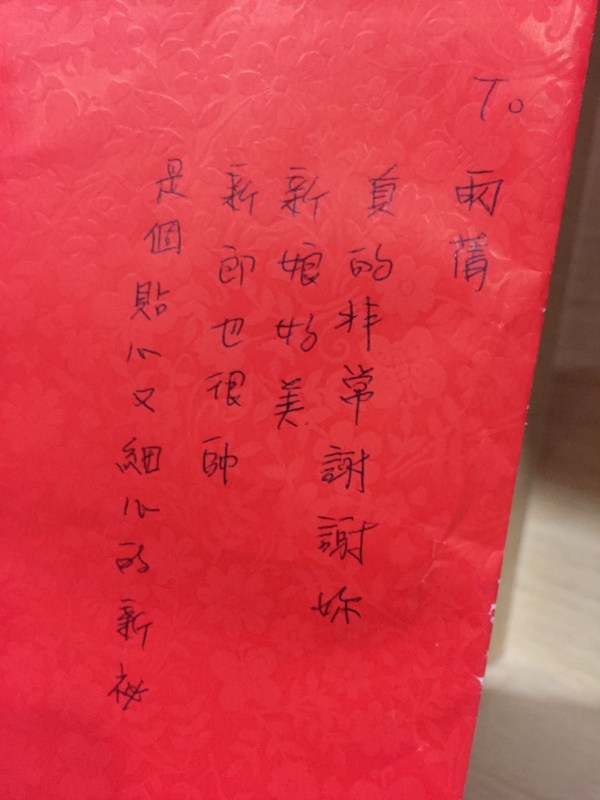 To
雨菁
真的非常謝謝妳
新娘好美
新郎也很帥
是個貼心又細心的新祕